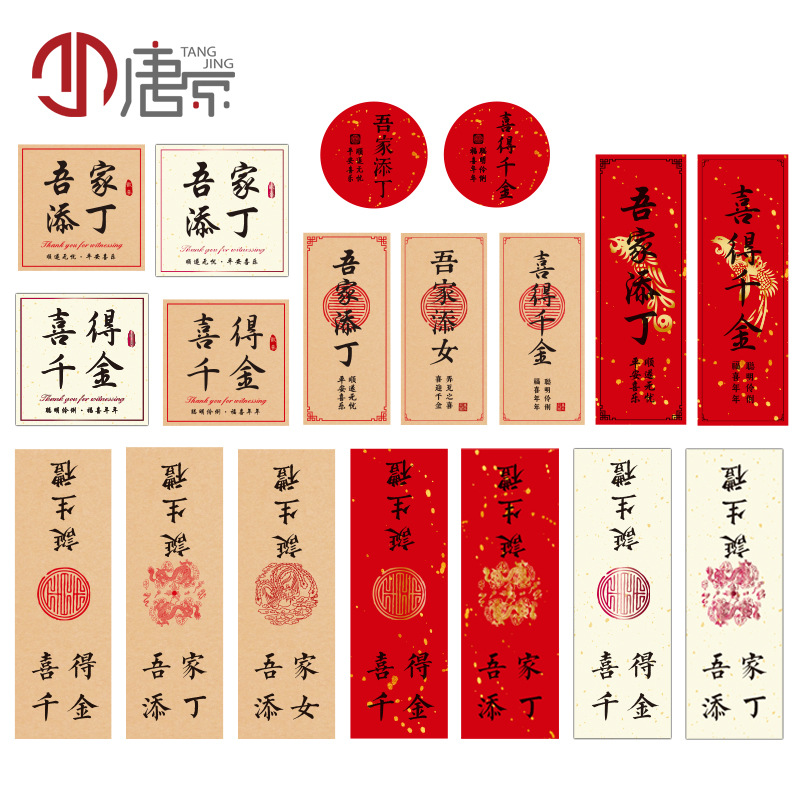 唐京
TANG
JING
吾家添丁
顺遂无忧
平安喜乐
喜得千金
聪明伶俐
福喜年年
吾家
添丁
Thank you for witnessing
顺遂无忧·平安喜乐
吾家
添丁
Thank you for witnessing
顺遂无忧·平安喜乐
喜得
千金
Thank you for witnessing
聪明伶俐·福喜年年
喜得
千金
Thank you for witnessing
聪明伶俐·福喜年年
吾家添丁
顺遂无忧
平安喜乐
吾家添女
弄瓦之喜
喜迎千金
喜得千金
聪明伶俐
福喜年年
吾家添丁
顺遂无忧
平安喜乐
喜得千金
聪明伶俐
福喜年年
誕生禮
喜得
千金
誕生禮
吾家
添丁
誕生禮
吾家
添女
誕生禮
喜得
千金
誕生禮
吾家
添丁
誕生禮
喜得
千金
誕生禮
吾家
添丁